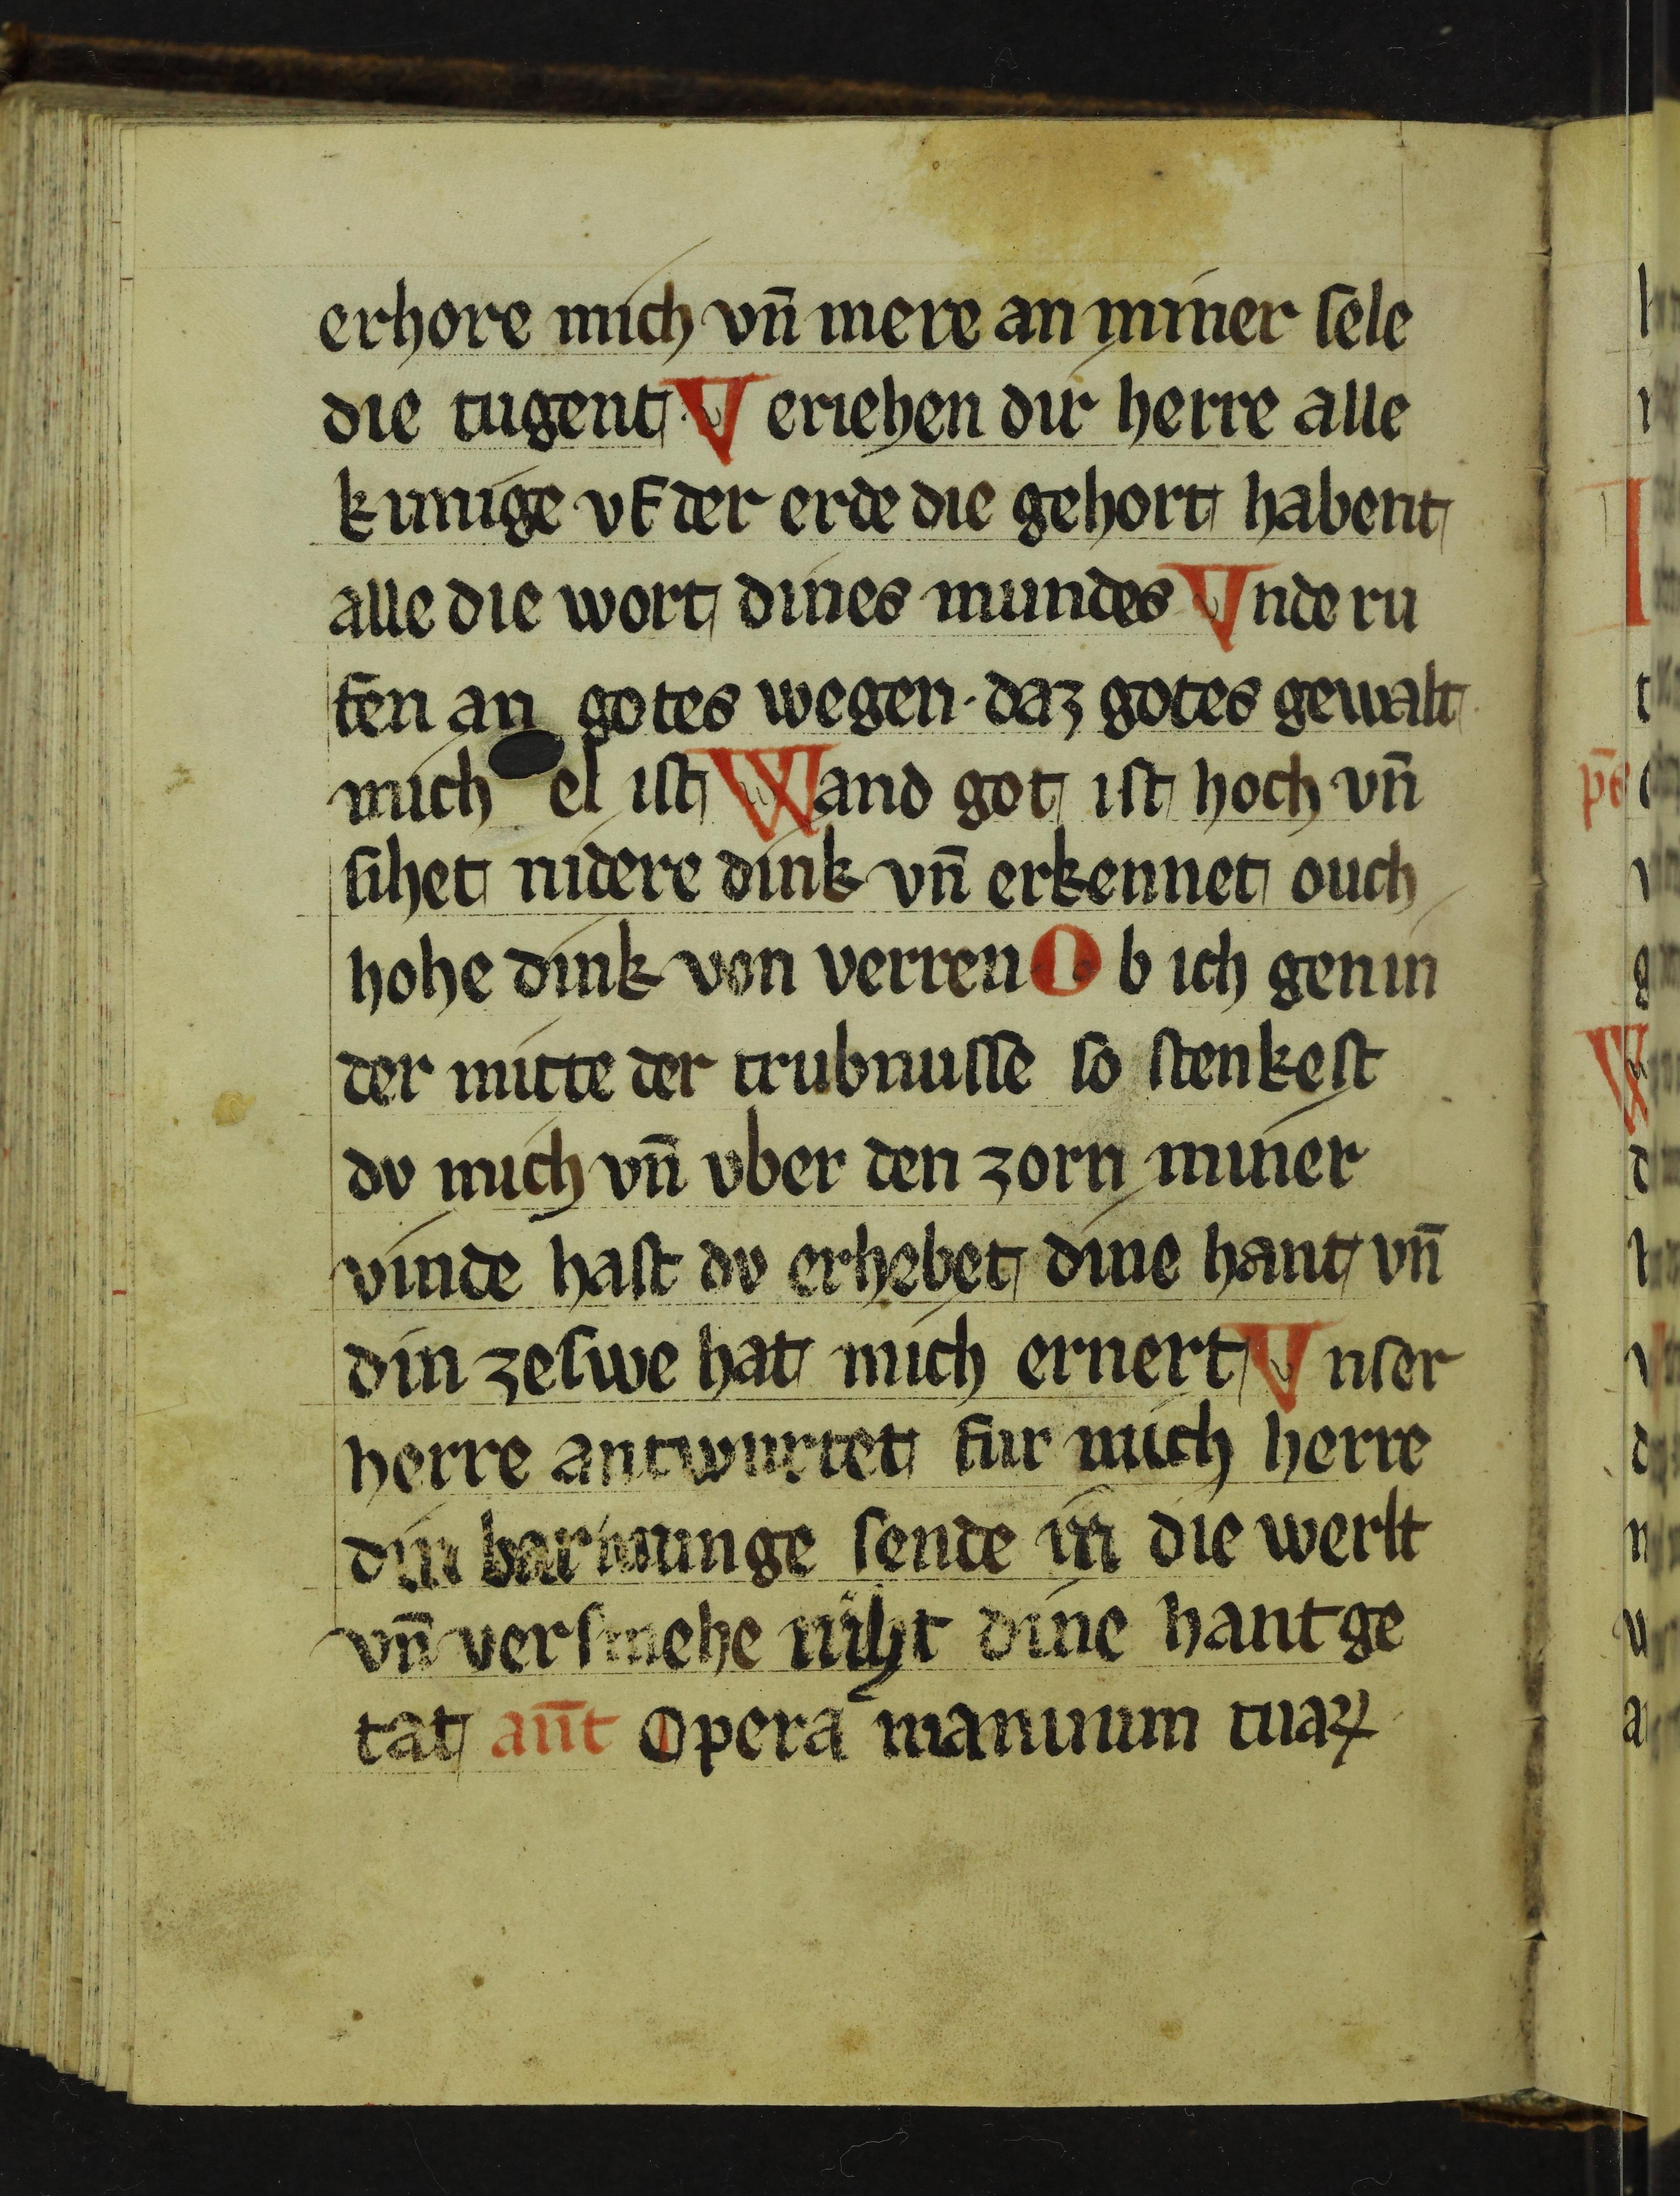 erhore mich vn̄ mere an miner ſele
die tugent · Veriehen dir herre alle
kunige vf der erde die gehort habent
alle die wort dines mundes Vnde ru
fen an gotes wegen · daz gotes gewalt
mich el iſt Wand got iſt hoch vn̄
ſihet nidere dink vn̄ erkennet ouch
hohe dink von verren Ob ich gen in
der mitte der trubnuſſe ſo ſtenkeſt
dv mich vn̄ vber den zorn miner
vinde haſt dv erhebet dine hant vn̄
din zeſwe hat mich ernert Vnſer
herre antwurtet fur mich herre
din barmunge ſende in die werlt
vn̄ verſmehe niht dine hantge
tat an̄t Opera manuum tuaꝝ